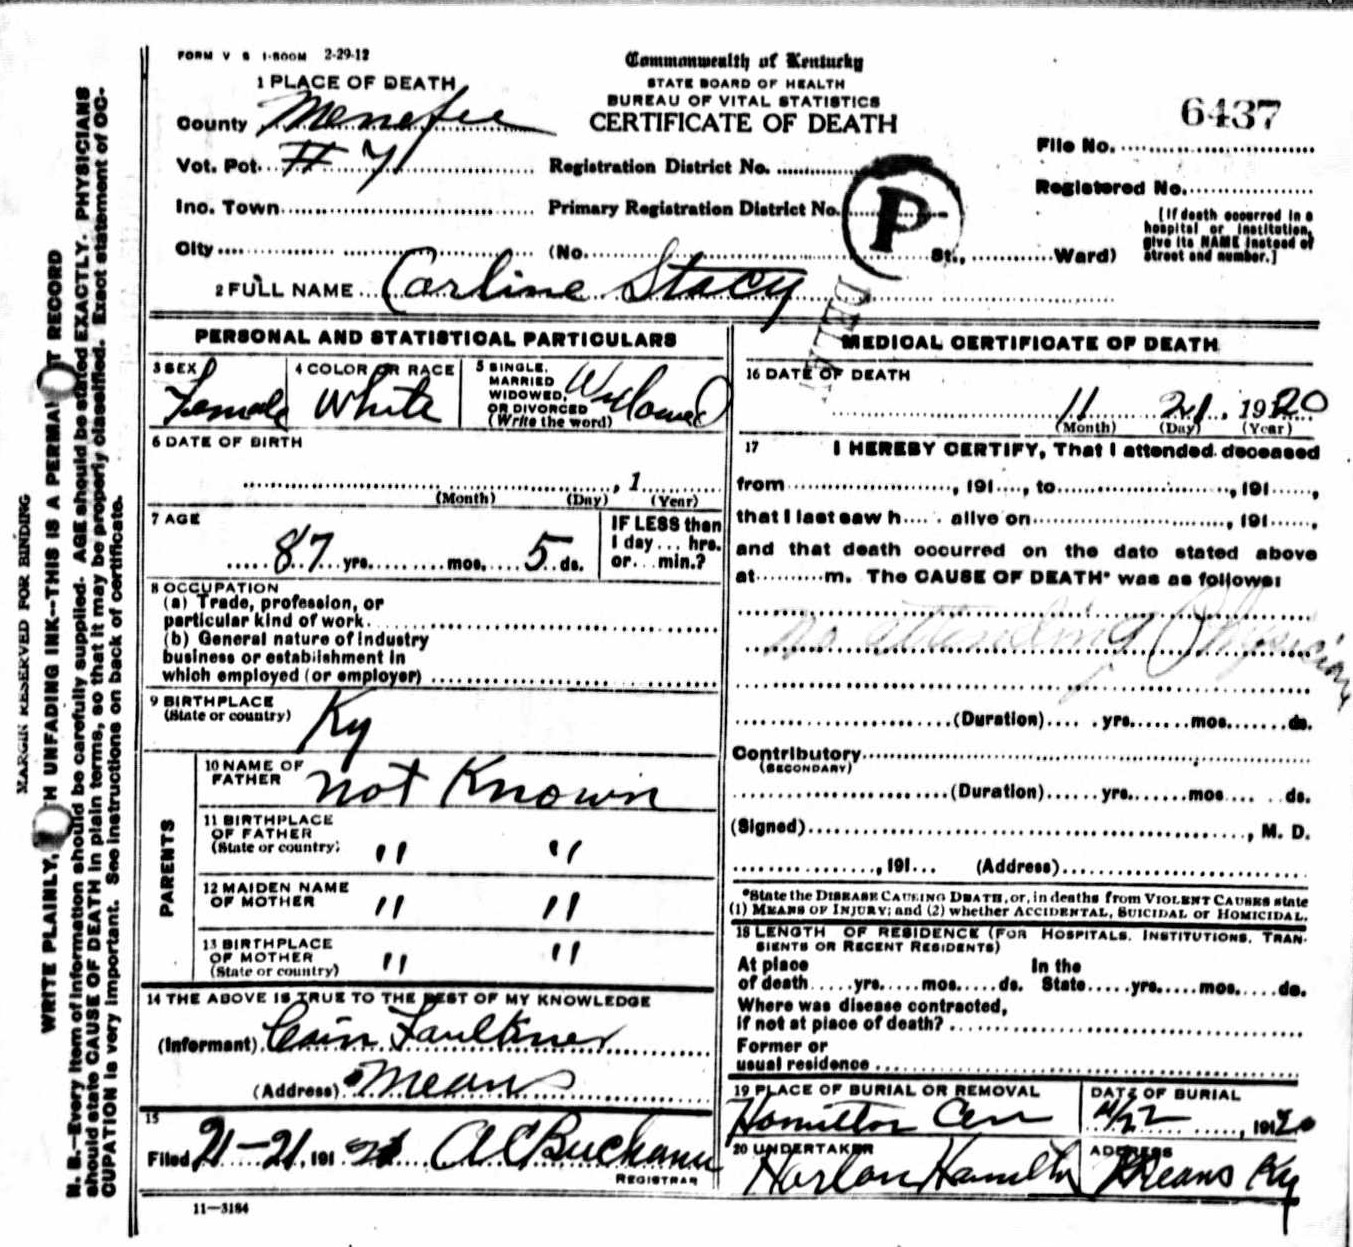 FORM V S 1-500M 2-29-12
Commonwealth of Kentucky
STATE BOARD OF HEALTH
BUREAU OF VITAL STATISTICS
CERTIFICATE OF DEATH
6437
File No.
Registered No.
[If death occurred in a hospital or institution, give its NAME instead of street and number.]
1 PLACE OF DEATH
County Menefee
Vot. Pct. # 7 Registration District No.
Inc. Town Primary Registration District No.
P
DELAY
City (No. St., Ward)
2 FULL NAME Carline Stacy
PERSONAL AND STATISTICAL PARTICULARS
3 SEX Female
4 COLOR OR RACE White
5 SINGLE, MARRIED WIDOWED, OR DIVORCED (Write the word) Widowed
6 DATE OF BIRTH
, 1
(Month) (Day) (Year)
7 AGE
87 yrs. mos. 5 ds.
IF LESS than 1 day ... hrs. or ... min.?
8 OCCUPATION
(a) Trade, profession, or
particular kind of work
(b) General nature of Industry
business or establishment in
which employed (or employer)
9 BIRTHPLACE
(State or country) Ky
PARENTS
10 NAME OF FATHER not Known
11 BIRTHPLACE OF FATHER (State or country) " "
12 MAIDEN NAME OF MOTHER " "
13 BIRTHPLACE OF MOTHER (State or country) " "
14 THE ABOVE IS TRUE TO THE BEST OF MY KNOWLEDGE
(Informant) Cain Faulkner
(Address) Means
15
Filed 21-21, 191 A C Buchanan
REGISTRAR
11-3184
MEDICAL CERTIFICATE OF DEATH
16 DATE OF DEATH
11 21, 1920
(Month) (Day) (Year)
17 I HEREBY CERTIFY, That I attended deceased
from , 191 , to , 191 ,
that I last saw h alive on , 191 ,
and that death occurred on the date stated above
at m. The CAUSE OF DEATH* was as follows:
no attending Physician
(Duration) yrs. mos. ds.
Contributory
(SECONDARY)
(Duration) yrs. mos ds.
(Signed) , M. D.
, 191 (Address)
*State the DISEASE CAUSING DEATH, or, in deaths from VIOLENT CAUSES state
(1) MEANS OF INJURY; and (2) whether ACCIDENTAL, SUICIDAL or HOMICIDAL.
18 LENGTH OF RESIDENCE (FOR HOSPITALS, INSTITUTIONS, TRAN-
SIENTS OR RECENT RESIDENTS)
At place In the
of death yrs. mos. ds. State yrs. mos. ds.
Where was disease contracted,
If not at place of death?
Former or
usual residence
19 PLACE OF BURIAL OR REMOVAL DATE OF BURIAL
Hamilton Cem 11/22, 1920
20 UNDERTAKER ADDRESS
Harlan Hamilton Means Ky
MARGIN RESERVED FOR BINDING
WRITE PLAINLY, H UNFADING INK--THIS IS A PERMA T RECORD
N. B.--Every item of information should be carefully supplied. AGE should be stated EXACTLY. PHYSICIANS
should state CAUSE OF DEATH in plain terms, so that it may be properly classified. Exact statement of OC-
CUPATION is very important. See instructions on back of certificate.